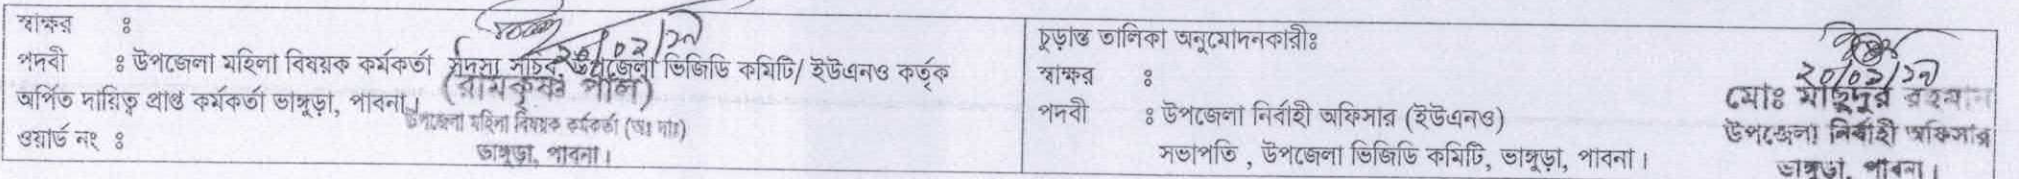 স্বাক্ষর ঃ
পদবী ঃ উপজেলা মহিলা বিষয়ক কর্মকর্তা সদস্য সচিব, উপজেলা ভিজিডি কমিটি/ ইউএনও কর্তৃক
অর্পিত দায়িত্ব প্রাপ্ত কর্মকর্তা ভাঙ্গুড়া, পাবনা।
ওয়ার্ড নং ঃ
(রামকৃষ্ণ পাল)
উপজেলা মহিলা বিষয়ক কর্মকর্তা (অঃ দাঃ)
ভাঙ্গুড়া, পাবনা।
চুড়ান্ত তালিকা অনুমোদনকারীঃ
স্বাক্ষর ঃ
পদবী ঃ উপজেলা নির্বাহী অফিসার (ইউএনও)
সভাপতি , উপজেলা ভিজিডি কমিটি, ভাঙ্গুড়া, পাবনা।
মোঃ মাছুদুর রহমান
উপজেলা নির্বাহী অফিসার
ভাঙ্গুড়া, পাবনা।